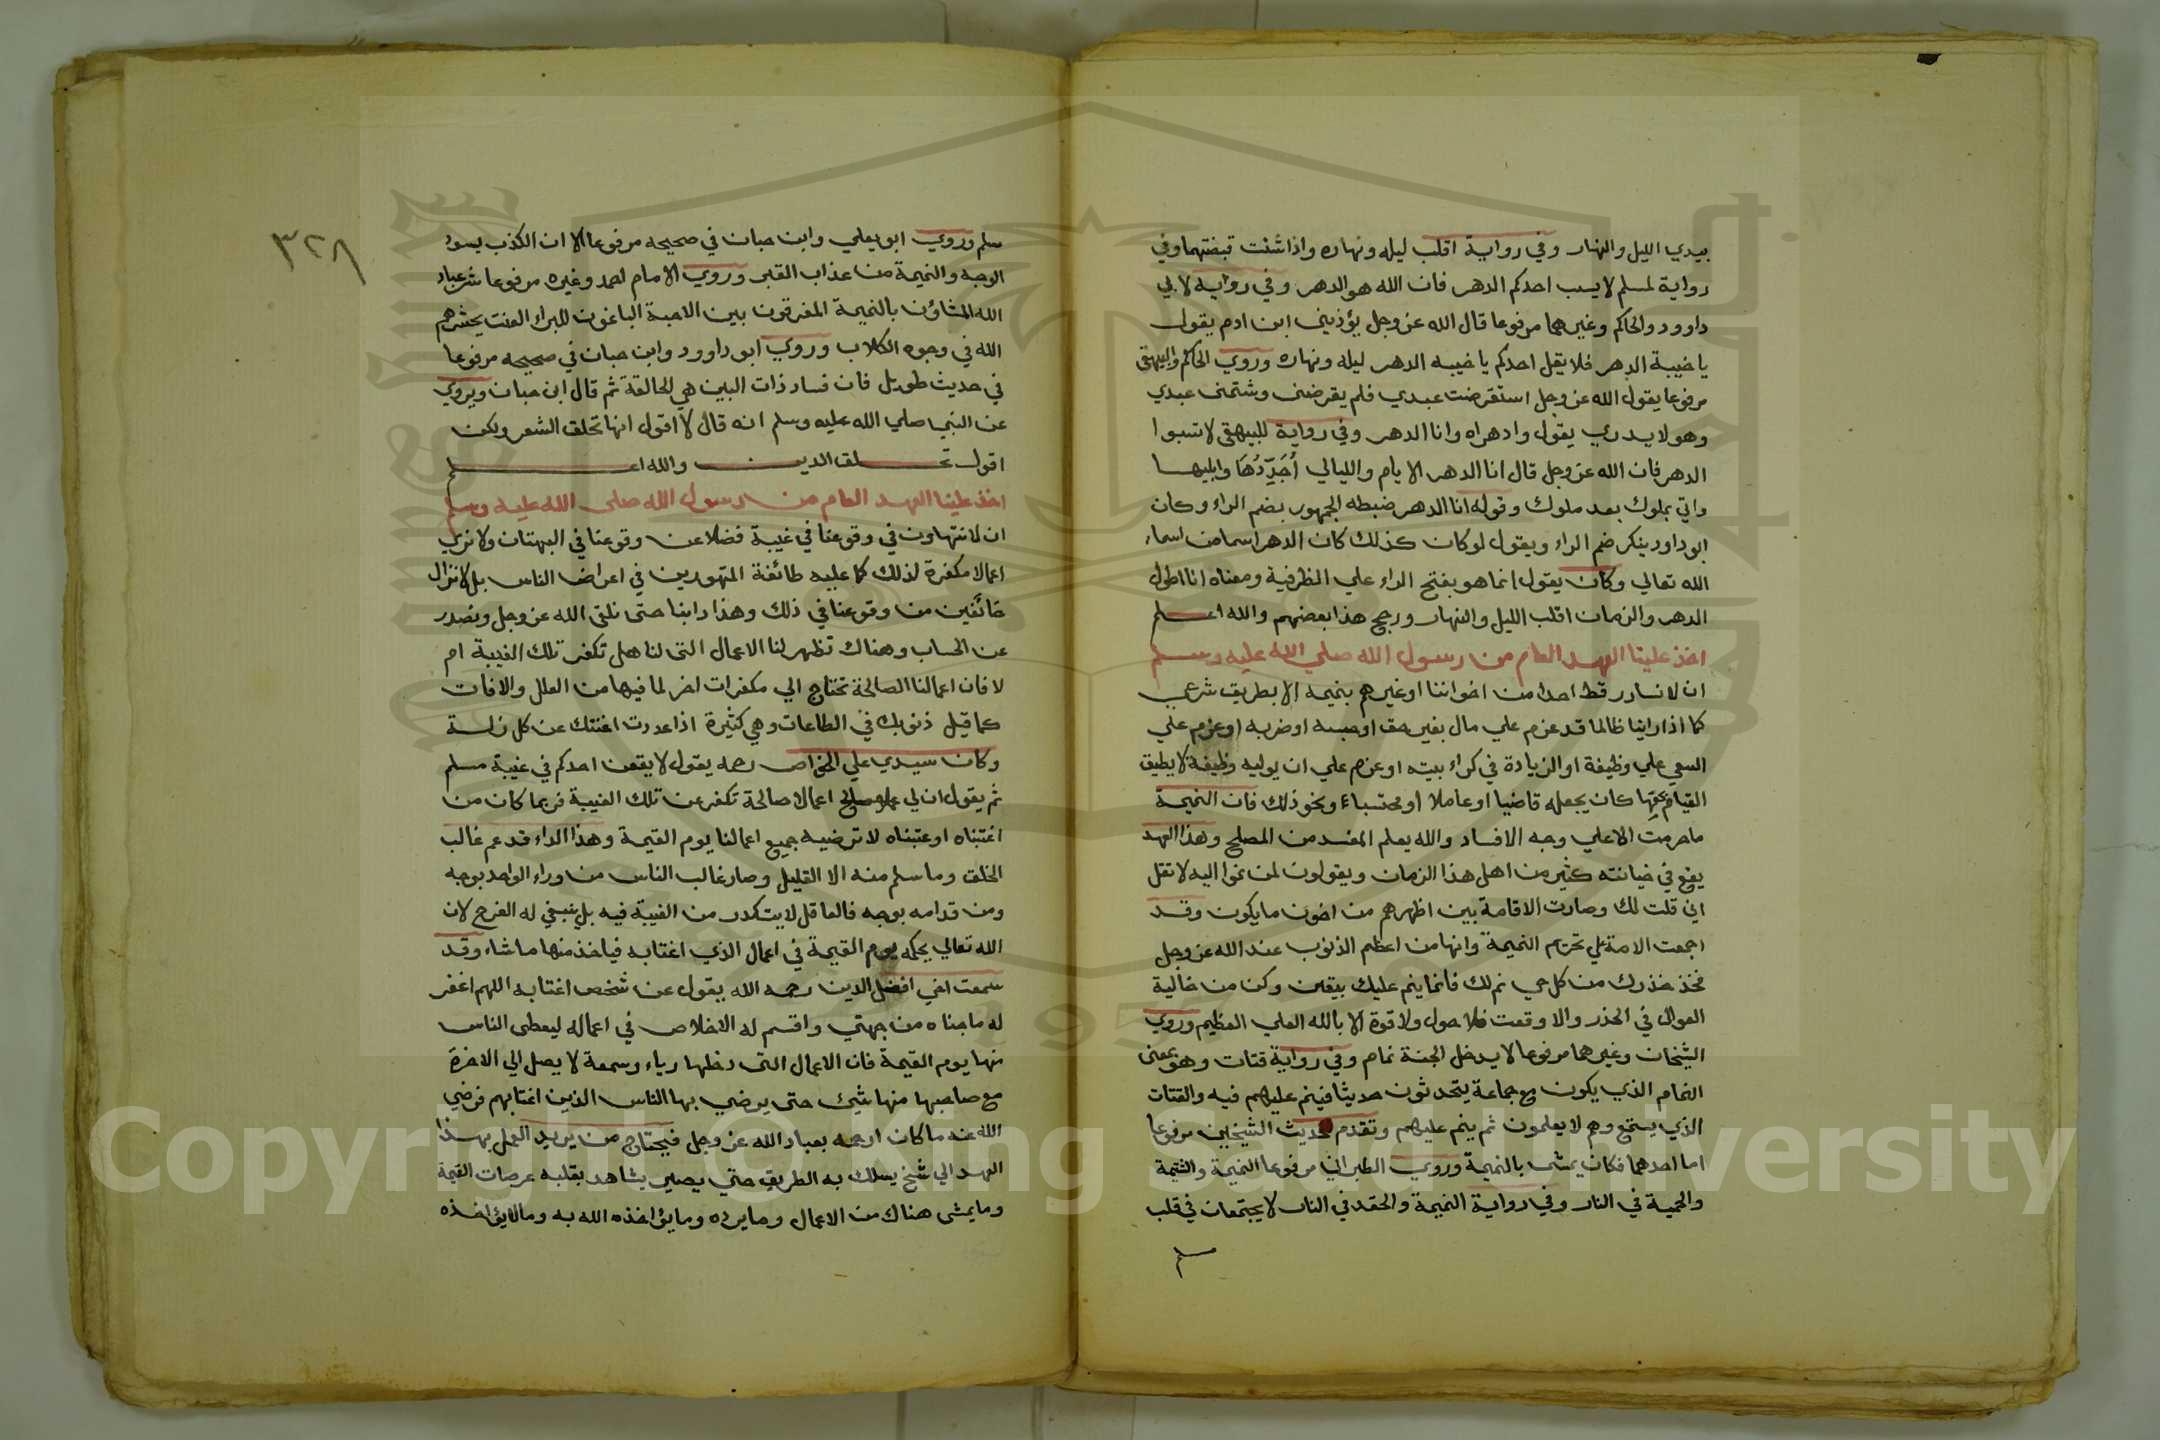 بيدي الليل والنهار وفي رواية اقلب ليله ونهاره واذا شئت قبضتهما وفي
رواية لمسلم لا يسب احدكم الدهر فان الله هو الدهر وفي رواية لابي
داوود والحاكم وغيرهما مرفوعا قال الله عز وجل يؤذيني ابن ادم يقول
يا خيبة الدهر فلا يقل احدكم يا خيبه الدهر ليله ونهاره وروي الحاكم والبيهقي
مرفوعا يقول الله عز وجل استقرضت عبدي فلم يقرضني وشتمني عبدي
وهو لا يدري يقول وادهراه وانا الدهر وفي رواية للبيهقي لا تسبوا
الدهر فان الله عز وجل قال انا الدهر الايام والليالي أُجَدِّدُهَا وابليها
واتي بملوك بعد ملوك وقوله انا الدهر ضبطه الجمهور بضم الراء وكان
ابو داود ينكر ضم الراء ويقول لو كان كذلك كان الدهر اسما من اسماء
الله تعالي وكان يقول انما هو بفتح الراء علي الظرفية ومعناه انا اطول
الدهر والزمان اقلب الليل والنهار ورجح هذا بعضهم والله اعلم
اخذ علينا العهد العام من رسول الله صلي الله عليه وسلم
ان لا نسارر قط احدا من اخواننا او غيرهم بنميمه الا بطريق شرعي
كما اذا راينا ظالما قد عزم علي مال بغير حق او حبسه او ضربه او عزم علي
السعي علي وظيفة او الزيادة في كراء بيته او عزم علي ان يوليه وظيفة لا يطيق
القيام بحقها كان يجعله قاضيا او عاملا او محتسباء ونحو ذلك فان النميمة
ما حرمت الا علي وجه الافساد والله يعلم المفسد من المصلح وهذا العهد
يقع في خيانته كثير من اهل هذا الزمان ويقولون لمن نموا اليه لا تقل
اني قلت لك وصارت الاقامة بين اظهرهم من اخون ما يكون وقد
اجمعت الامة علي تحريم النميمة وانها من اعظم الذنوب عند الله عز وجل
فخذ حذرك من كل حي نم لك فانما ينم عليك بيقين وكن من خالية
العوالي في الحذر والا وقعت فلا حول ولا قوة الا بالله العلي العظيم وروي
الشيخان وغيرهما مرفوعا لا يدخل الجنة نمام وفي رواية قتات وهو بمعنى
النمام الذي يكون مع جماعة يتحدثون حديثا فينم عليهم فيه والقتات
الذي يستمع وهم لا يعلمون ثم ينم عليهم وتقدم حديث الشيخين مرفوعا
اما احدهما فكان يمشي بالنميمة وروي الطبراني مرفوعا النميمة والشتيمة
والحمية في النار وفي رواية النميمة والحقد في النار لا يجتمعان في قلب
مسلم
٣٢٨
سلم وروي ابو يعلي وابن حبان في صحيحه مرفوعا الا ان الكذب يسود
الوجه والنميمة من عذاب القبر وروي الامام احمد وغيره مرفوعا شر عباد
الله المشاؤن بالنميمة المفرقون بين الاحبة الباغون للبراء العنت يحشرهم
الله في وجوه الكلاب وروي ابو داوود وابن حبان في صحيحه مرفوعا
في حديث طويل فان فساد ذات البين هي الحالقة ثم قال ابن حبان ويروي
عن النبي صلي الله عليه وسلم انه قال لا اقول انها تحلق الشعر ولكن
اقول تحلق الدين والله اعلم
اخذ علينا العهد العام من رسول الله صلى الله عليه وسلم
ان لا نتهاون في وقوعنا في غيبة فضلا عن وقوعنا في البهتان ولا نري
اعمالا مكفرة لذلك كما عليه طائفة المتهورين في اعراض الناس بل لا نزال
خائفين من وقوعنا في ذلك وهذا دابنا حتى نلقى الله عز وجل ونصدر
عن الحساب وهناك تظهر لنا الاعمال التي لنا هل تكفر تلك الغيبة ام
لا فان اعمالنا الصالحة تحتاج الي مكفرات اخر لما فيها من العلل والافات
كما قيل ذنوبك في الطاعات وهي كثيرة اذا عددت اغنتك عن كل زلة
وكان سيدي علي الخواص رحمه يقول لا يقعن احدكم في غيبة مسلم
ثم يقول ان لي اعمالا صالحة تكفر عن تلك الغيبة فربما كان من
اغتبناه او عتبناه لا ترضيه جميع اعمالنا يوم القيمة وهذا الداء قد عم غالب
الخلق وما سلم منه الا القليل وصار غالب الناس من وراء الواحد بوجه
ومن قدامه بوجه فالعاقل لا يتكدر من الغيبة فيه بل ينبغي له الفرح لان
الله تعالي يحكمه يوم القيمة في اعمال الذي اغتابه فياخذ منها ما شاء وقد
سمعت اخي افضل الدين رحمه الله يقول عن شخص اغتابه اللهم اغفر
له ما جناه من جهتي واقسم له الاخلاص في اعماله ليعطي الناس
منها يوم القيمة فان الاعمال التي دخلها رياء وسمعة لا يصل الي الاخرة
مع صاحبها منها شيئ حتى يرضي بها الناس الذين اغتابهم فرضي
الله عنه ما كان ارحمه بعباد الله عز وجل فيحتاج من يريد العمل بهذا
العهد الي شيخ يسلك به الطريق حتي يصير يشاهد بقلبه عرصات القيمة
وما يمشى هناك من الاعمال وما يرده وما يؤاخذه الله به وما لا يؤاخذه
Copyright © King Saud University